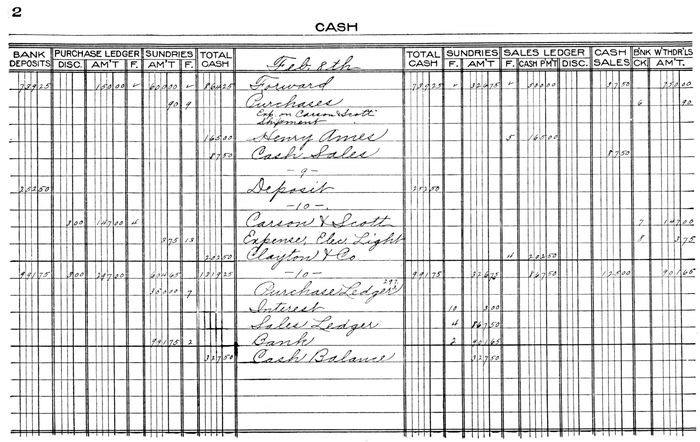 2
CASH
BANK DEPOSITS PURCHASE LEDGER SUNDRIES TOTAL CASH Feb 8th TOTAL CASH SUNDRIES SALES LEDGER CASH SALES B'NK W'THDR'LS
DISC. AM'T F. AM'T F. F. AM'T F. CASH PM'T DISC. CK AM'T.
739 25 150 00 ✓ 600 00 ✓ 864 25 Forward 739 25 ✓ 324 75 ✓ 500 00 37 50 750 00
90 9 Purchases 6 90
Exp. on Carson & Scott
Shipment
165 00 Henry Ames 5 165 00
87 50 Cash Sales 87 50
-9-
252 50 Deposit 252 50
-10-
3 00 147 00 4 Carson & Scott 7 147 00
3 75 13 Expense, Elec. Light 8 3 75
202 50 Clayton & Co 4 202 50
991 75 3 00 297 00 604 65 1319 25 -10- 991 75 867 50 125 00 901 65
7 Purchase Ledger 297
Interest 10 3 00
Sales Ledger 4 867 50
991 75 2 Bank 2 901 65
327 50 Cash Balance 327 50